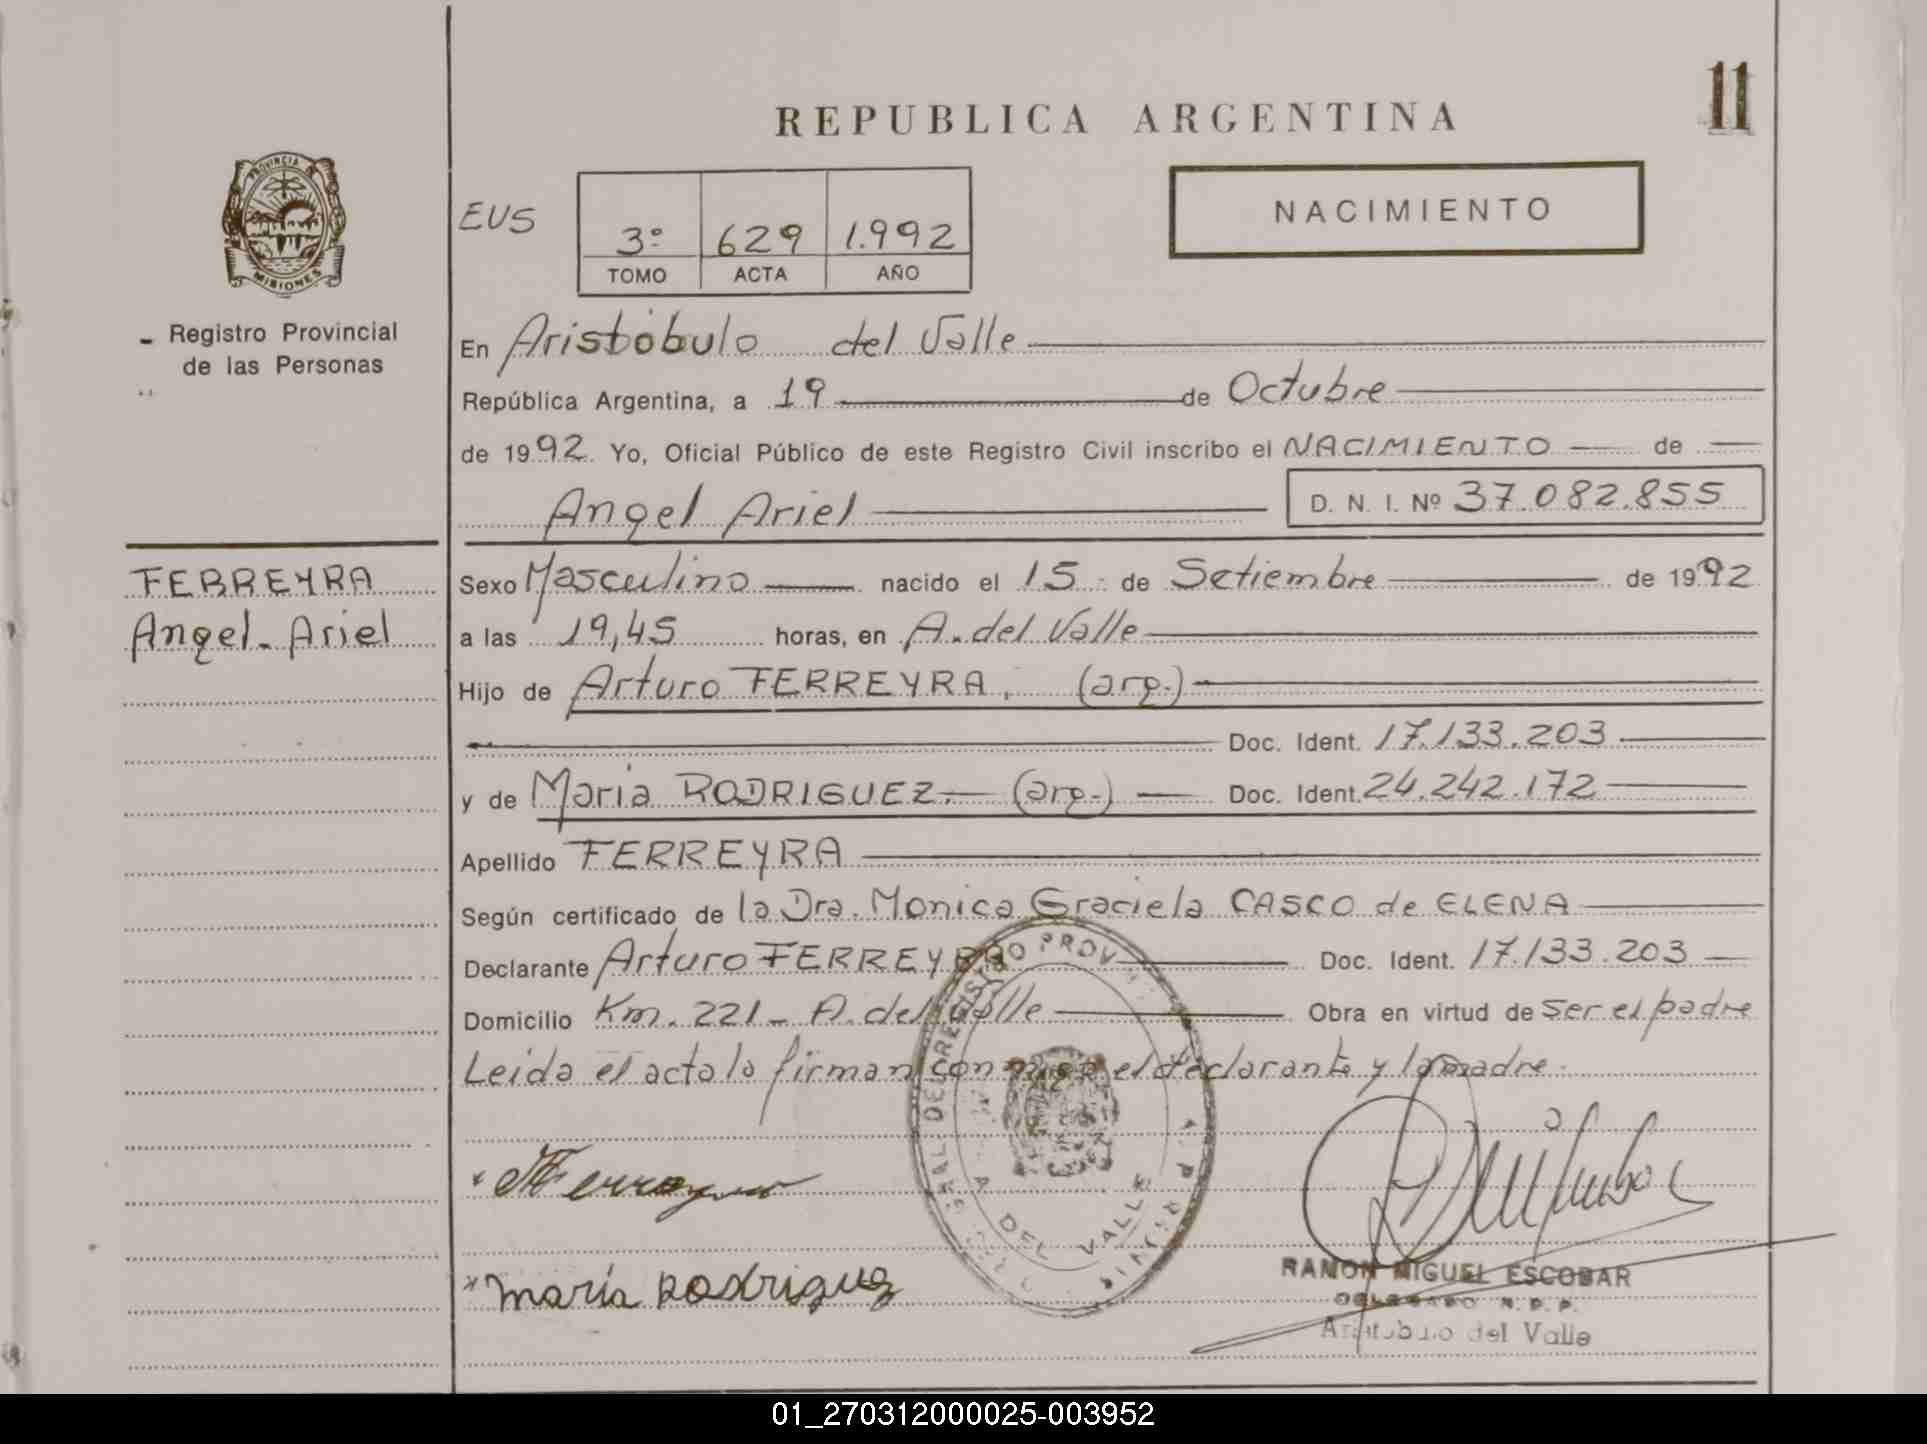 REPUBLICA ARGENTINA
11
PROVINCIA
MISIONES
Registro Provincial
de las Personas
EUS
3º 629 1.992
TOMO ACTA AÑO
NACIMIENTO
En Aristóbulo del Valle
República Argentina, a 19 de Octubre
de 1992. Yo, Oficial Público de este Registro Civil inscribo el NACIMIENTO de
Angel Ariel
D. N. I. Nº 37.082.855
FERREYRA
Angel Ariel
Sexo Masculino nacido el 15 de Setiembre de 1992
a las 19,45 horas, en A. del Valle
Hijo de Arturo FERREYRA, (arg.)
Doc. Ident. 17.133.203
y de Maria RODRIGUEZ. (arg.) Doc. Ident. 24.242.172
Apellido FERREYRA
Según certificado de la Dra. Monica Graciela CASCO de ELENA
Declarante Arturo FERREYRA Doc. Ident. 17.133.203
Domicilio Km. 221 - A. del Valle Obra en virtud de ser el padre
Leida el acta la firman con migo el declarante y la madre.
A. DEL VALLE
Ferreyra
maría Rodriguez
RAMON MIGUEL ESCOBAR
DELEGADO R. P. P.
Aristobulo del Valle
01_270312000025-003952